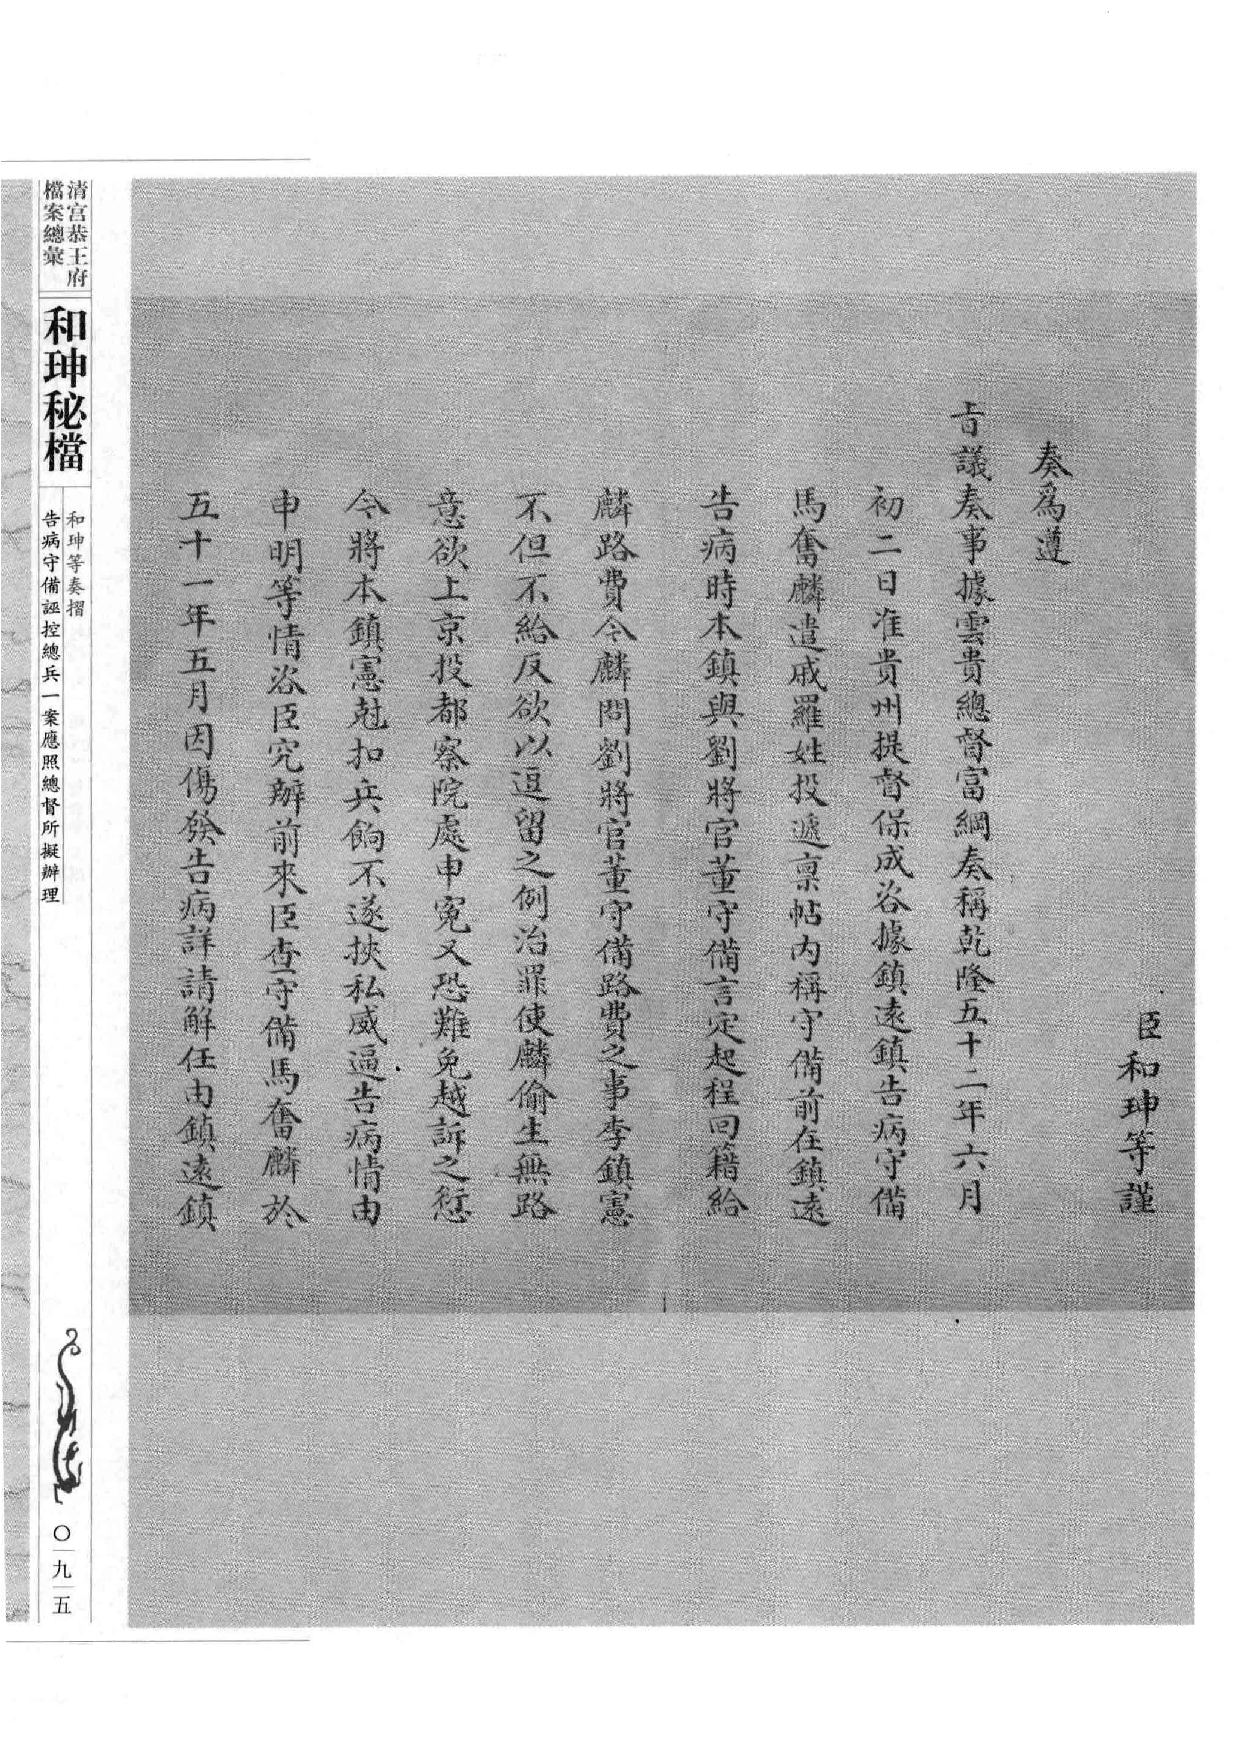 臣和珅等謹
奏爲遵
旨議奏事據雲貴總督富綱奏稱乾隆五十二年六月
初二日准貴州提督保成咨據鎮遠鎮告病守備
馬奮麟遣戚羅姓投遞禀帖内稱守備前在鎮遠
告病時本鎮與劉將官董守備言定起程回籍給
麟路費令麟問劉將官董守備路費之事李鎮憲
不但不給反欲以逗留之例治罪使麟偷生無路
意欲上京投都察院處申寃又恐難免越訴之愆
今將本鎮憲尅扣兵餉不遂挾私威逼告病情由
申明等情咨臣究辦前來臣查守備馬奮麟於
五十一年五月因傷發告病詳請解任由鎮遠鎮
清宫恭王府
檔案總彙
和珅秘檔
和珅等奏摺
告病守備誣控總兵一案應照總督所擬辦理
〇九五